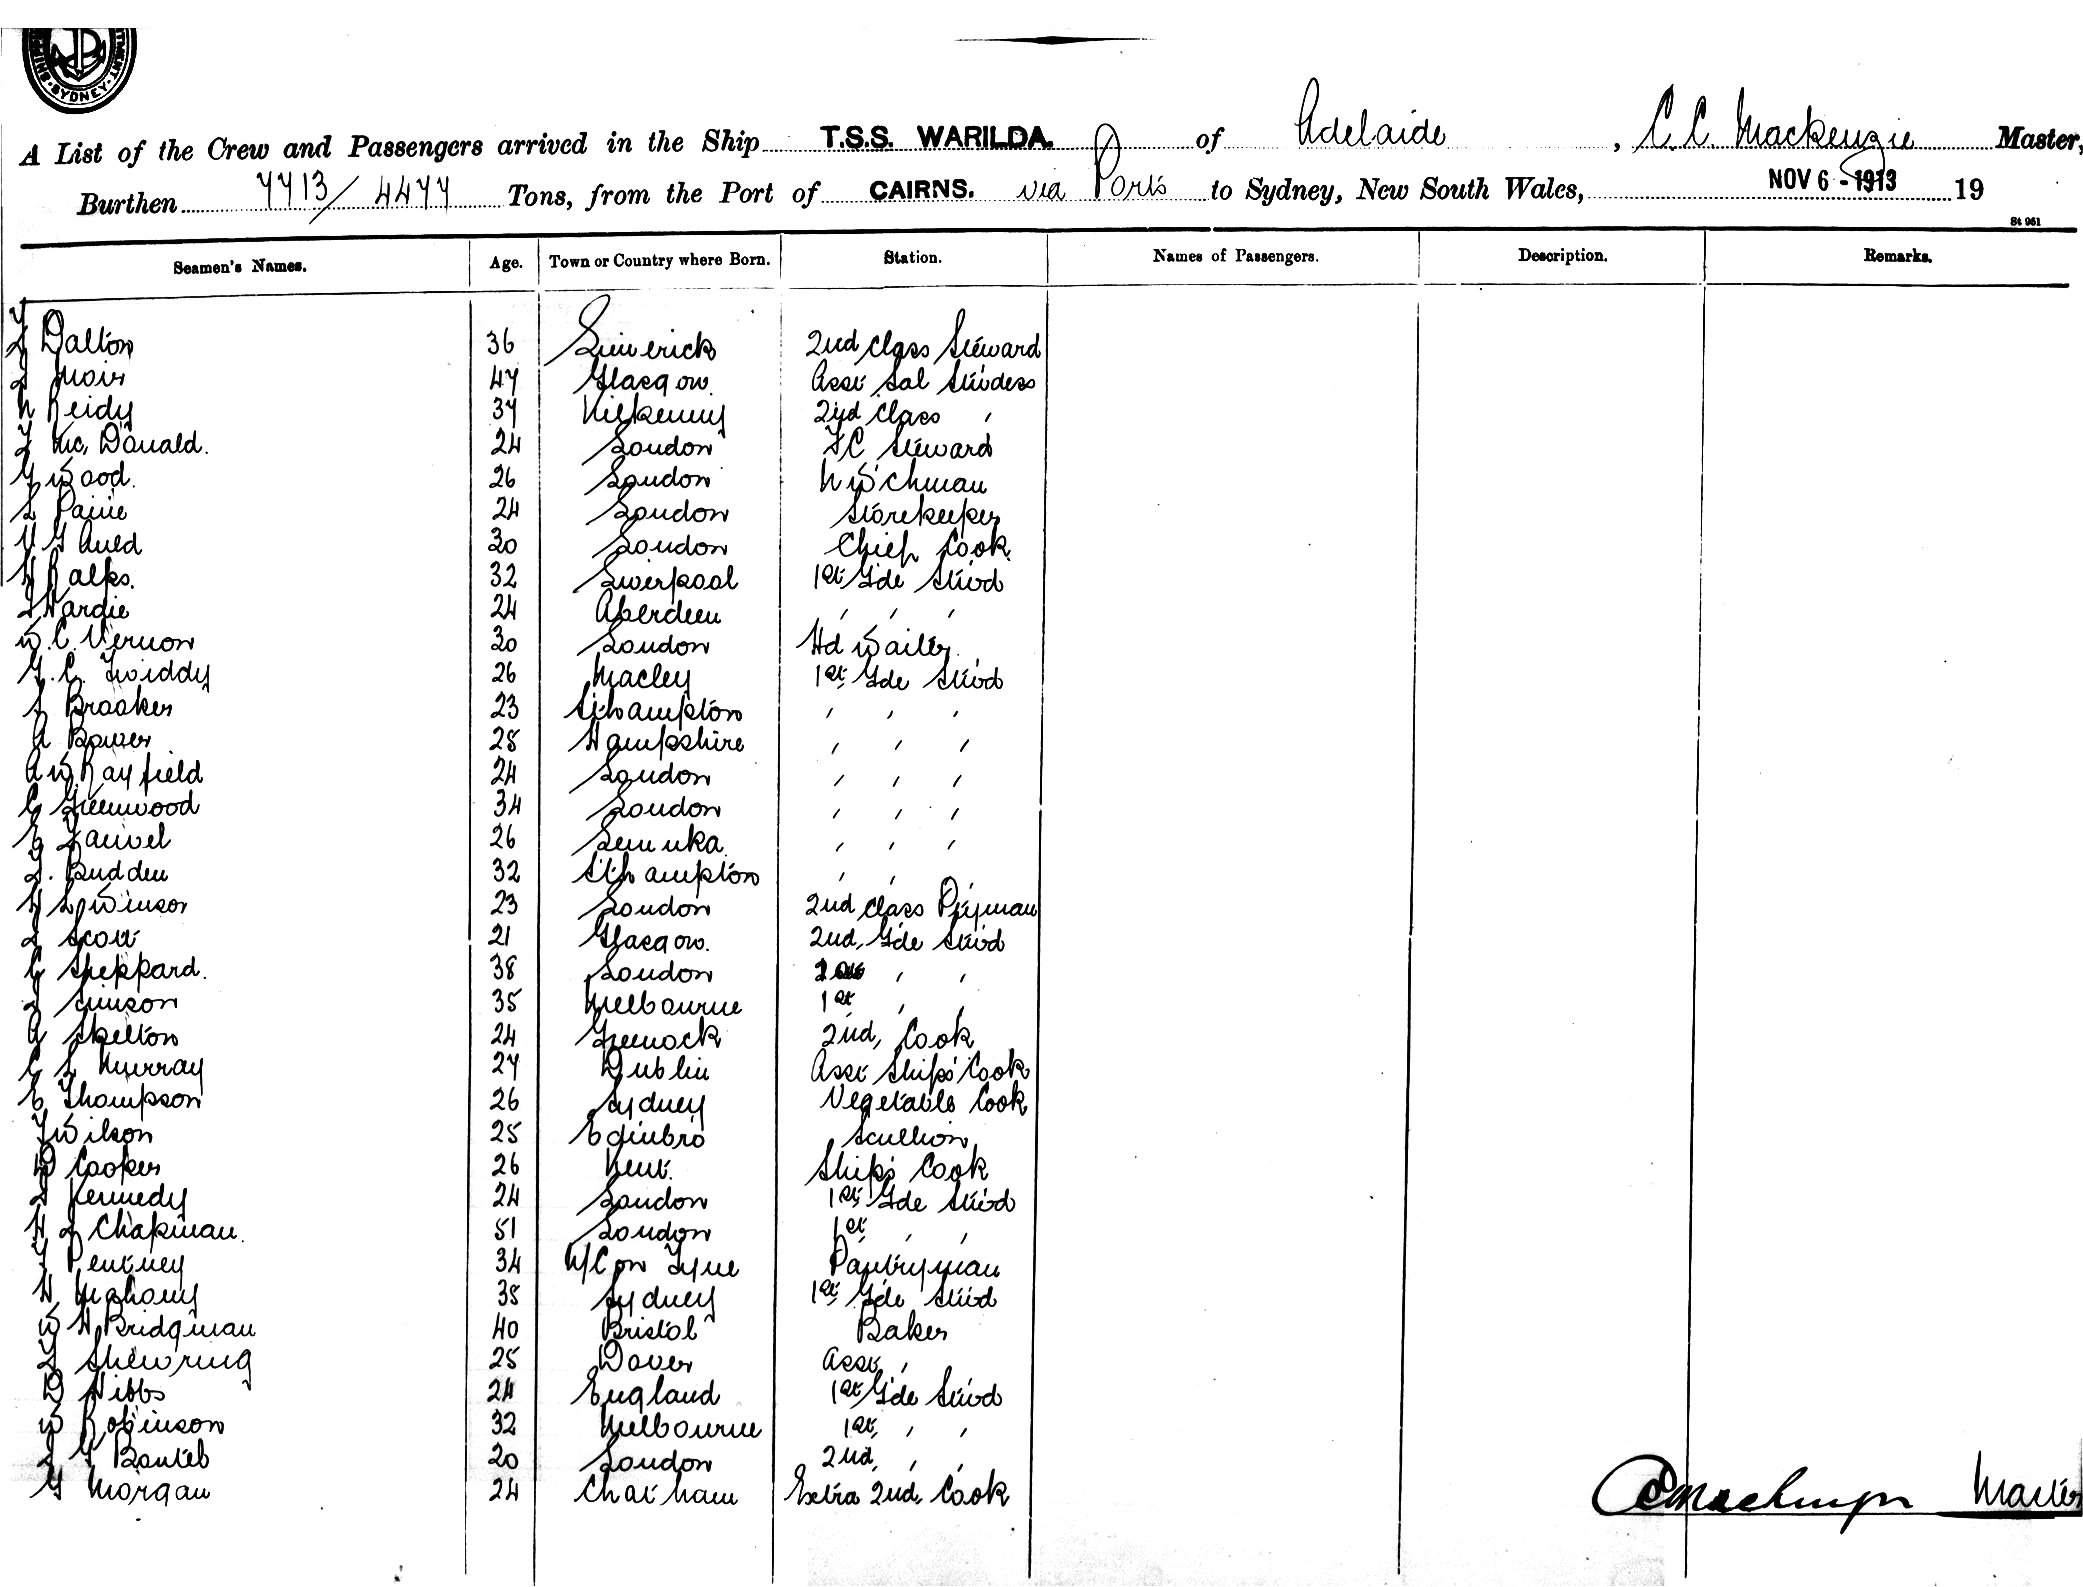 SYDNEY
A List of the Crew and Passengers arrived in the Ship T.S.S. WARILDA. of Adelaide, C. C. Mackenzie Master,
Burthen 7713/4477 Tons, from the Port of CAIRNS. via Ports to Sydney, New South Wales, NOV 6 - 1913 19
St 951
Seamen's Names. Age. Town or Country where Born. Station. Names of Passengers. Description. Remarks.
Dalton 36 Limerick 2nd Class Steward
Moir 47 Glasgow Asst Sal Stwdess
Reidy 37 Kilkenny 2nd Class "
McDonald. 24 London FC Steward
Wood. 26 London N W'chman
L Paine 24 London Storekeeper
Auld 30 London Chief Cook
H Ralfs. 32 Liverpool 1st Gde Stwd
Hardie 24 Aberdeen " " "
W. C. Vernon 30 London Hd Waiter.
G. C. Twiddy 26 Macley 1st Gde Stwd
Braaker 23 Sthampton " " "
A Bower 28 Hampshire " " "
A W Rayfield 24 London " " "
C Greenwood 34 London " " "
26 " " "
Budden 32 Sthampton " " "
H L Winsor 23 London 2nd Class P'tryman
J Scott 21 Glasgow. 2nd, Gde Stwd
C Sheppard. 38 London " "
J Simson 35 Melbourne 1st " "
A Skelton 24 Greenock 2nd, Cook
C L Murray 27 Dublin Asst Ships' Cook
E Thompson 26 Sydney Vegetable Cook
Wilson 25 Edinbro Scullion
D Cooper 26 Kent. Ship's Cook
J Kennedy 24 London 1st, Gde Stwd
H J Chapman. 51 London 1st " "
Pentney 34 N/C on Tyne Pantryman
H Mahony 38 Sydney 1st, Gde Stwd
W H Bridgman 40 Bristol Baker
Shewring 25 Dover Asst "
D Hibbs 24 England 1st Gde Stwd
W Robinson 32 Melbourne 1st, " "
20 London 2nd, " "
G Morgan 24 Chatham Extra 2nd, Cook
CC Mackenzie Master